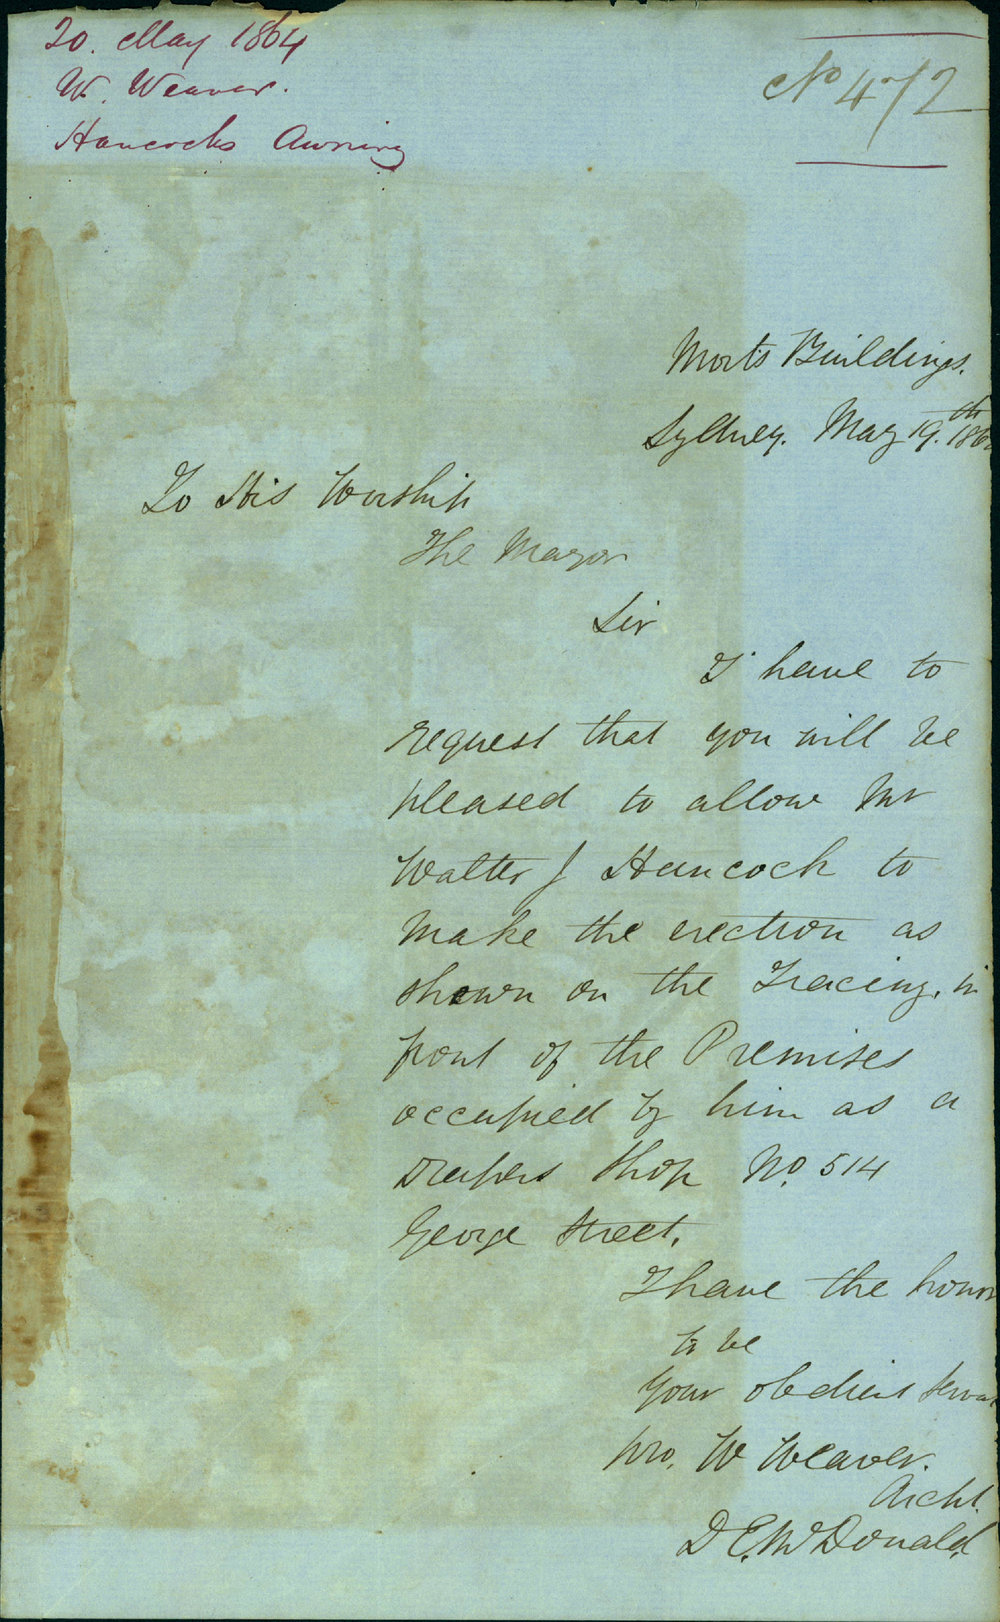 20. May 1864
W. Weaver.
Hancocks Awning
No 472
Morts Buildings.
Sydney. May 19.th 186
To His Worship
The Mayor
Sir
I have to
request that you will be
pleased to allow Mr
Walter J Hancock to
make the erection as
shown on the Tracing, in
front of the Premises
occupied by him as a
Drapers Shop No. 514
George Street.
I have the honor
to be
Your obedient Servant
pro. W Weaver.
Archt.
D E. McDonald.